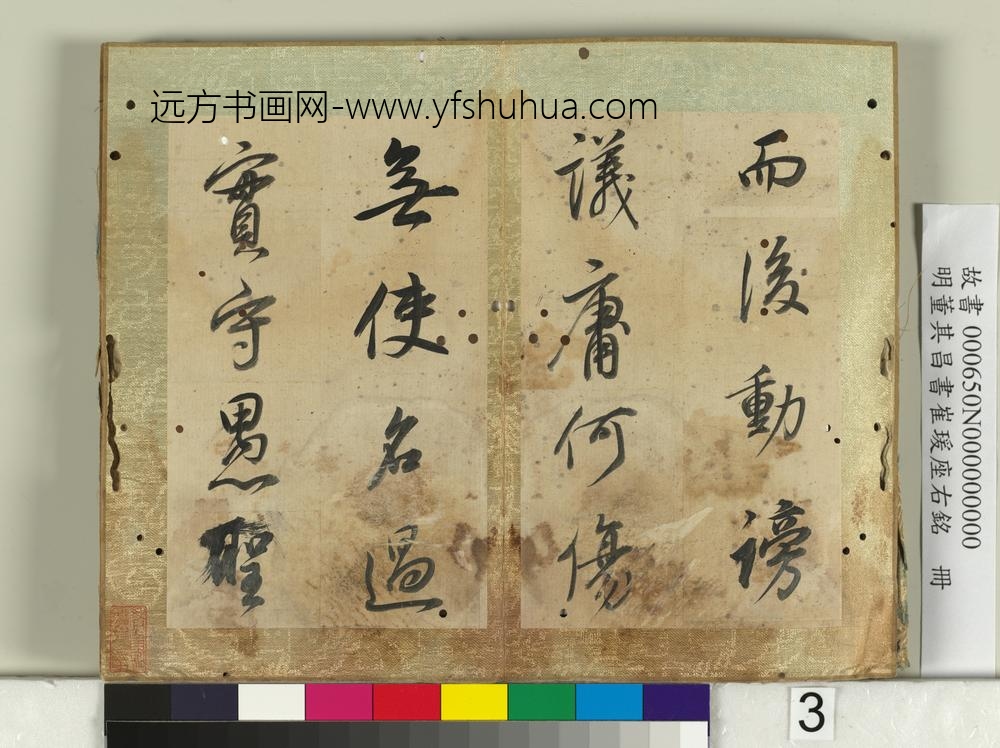 远方书画网-www.yfshuhua.com
而後動謗
議庸何傷
無使名過
實守愚聖
故書 000650N000000000
明董其昌書崔瑗座右銘 冊
3